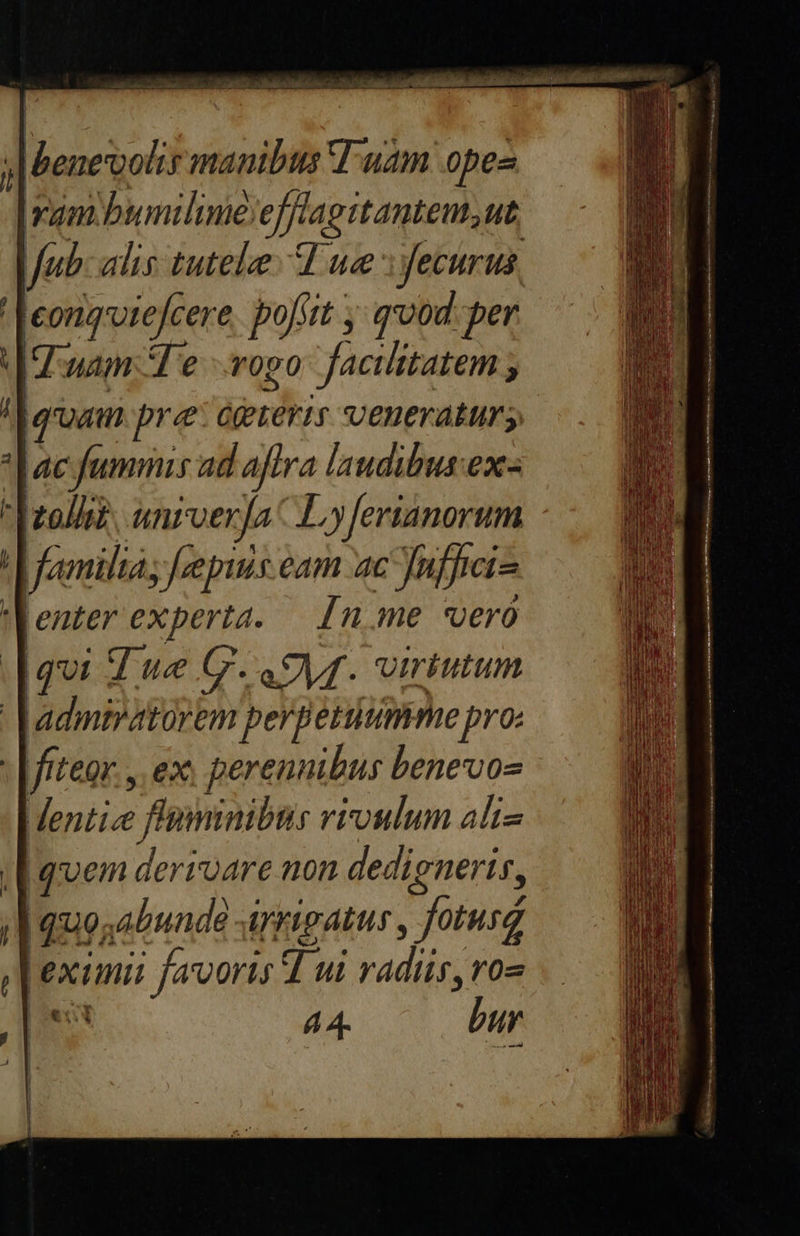 benevolis manibus Tuam ope=
ram humilimè efflagitantem, ut
ſub alis tutelæ Tuæ ſecurus
conqvieſcere poſsit, qvod per
Tuam Te rogo facilitatem,
qvam præ cæteris veneratur,
ac ſummis ad aſtra laudibus ex=
tollit univerſa Lyſerianorum
familia, ſæpius eam ac ſuffici=
enter experta. In me verò
qvi Tuæ G. M. virtutum
admiratorem perpetuum me pro=
fiteor, ex perennibus benevo=
lentiæ fluminibus rivulum ali=
qvem derivare non dedigneris,
quo abundè irrigatus, fotusq́
eximii favoris Tui radiis, ro=
A4 bur